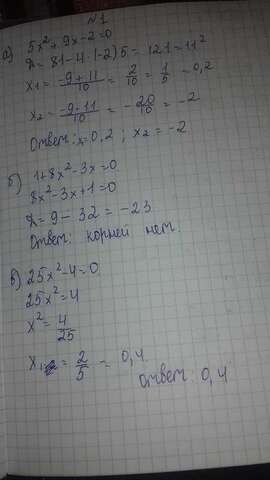 №1
а) 5x²+9x-2=0
Д=81-4·(-2)5=121=11²
x₁=-9+11/10=2/10=1/5=0,2
x₂=-9-11/10=-20/10=-2
Ответ: x=0,2; x₂=-2
б) 1+8x²-3x=0
8x²-3x+1=0
Д=9-32=-23
Ответ: корней нет.
в) 25x²-4=0
25x²=4
x²=4/25
x₁=2/5=0,4
Ответ: 0,4